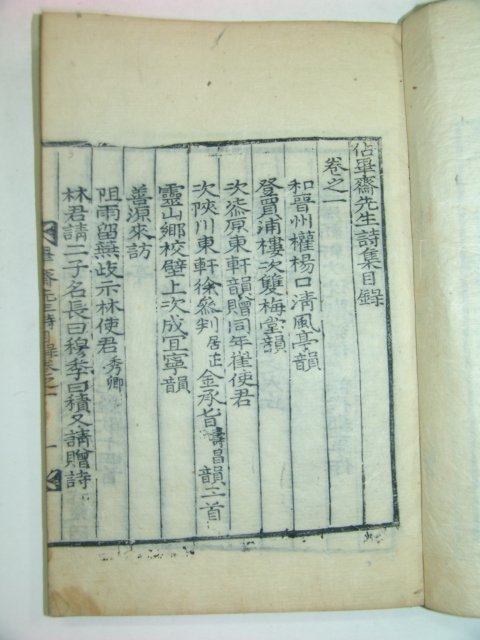 佔畢齋先生詩集目錄
卷之一
和晉州權楊口清風亭韻
登買浦樓次雙梅堂韻
次漆原東軒韻贈同年崔使君
次陜川東軒徐叅判居正金承旨壽昌韻二首
靈山鄉校壁上次成宜寧韻
善源來訪
阻雨留無歧示林使君秀卿
林君請二子名長曰穆季曰積又請贈詩
畢齋先生詩目錄卷之一
一